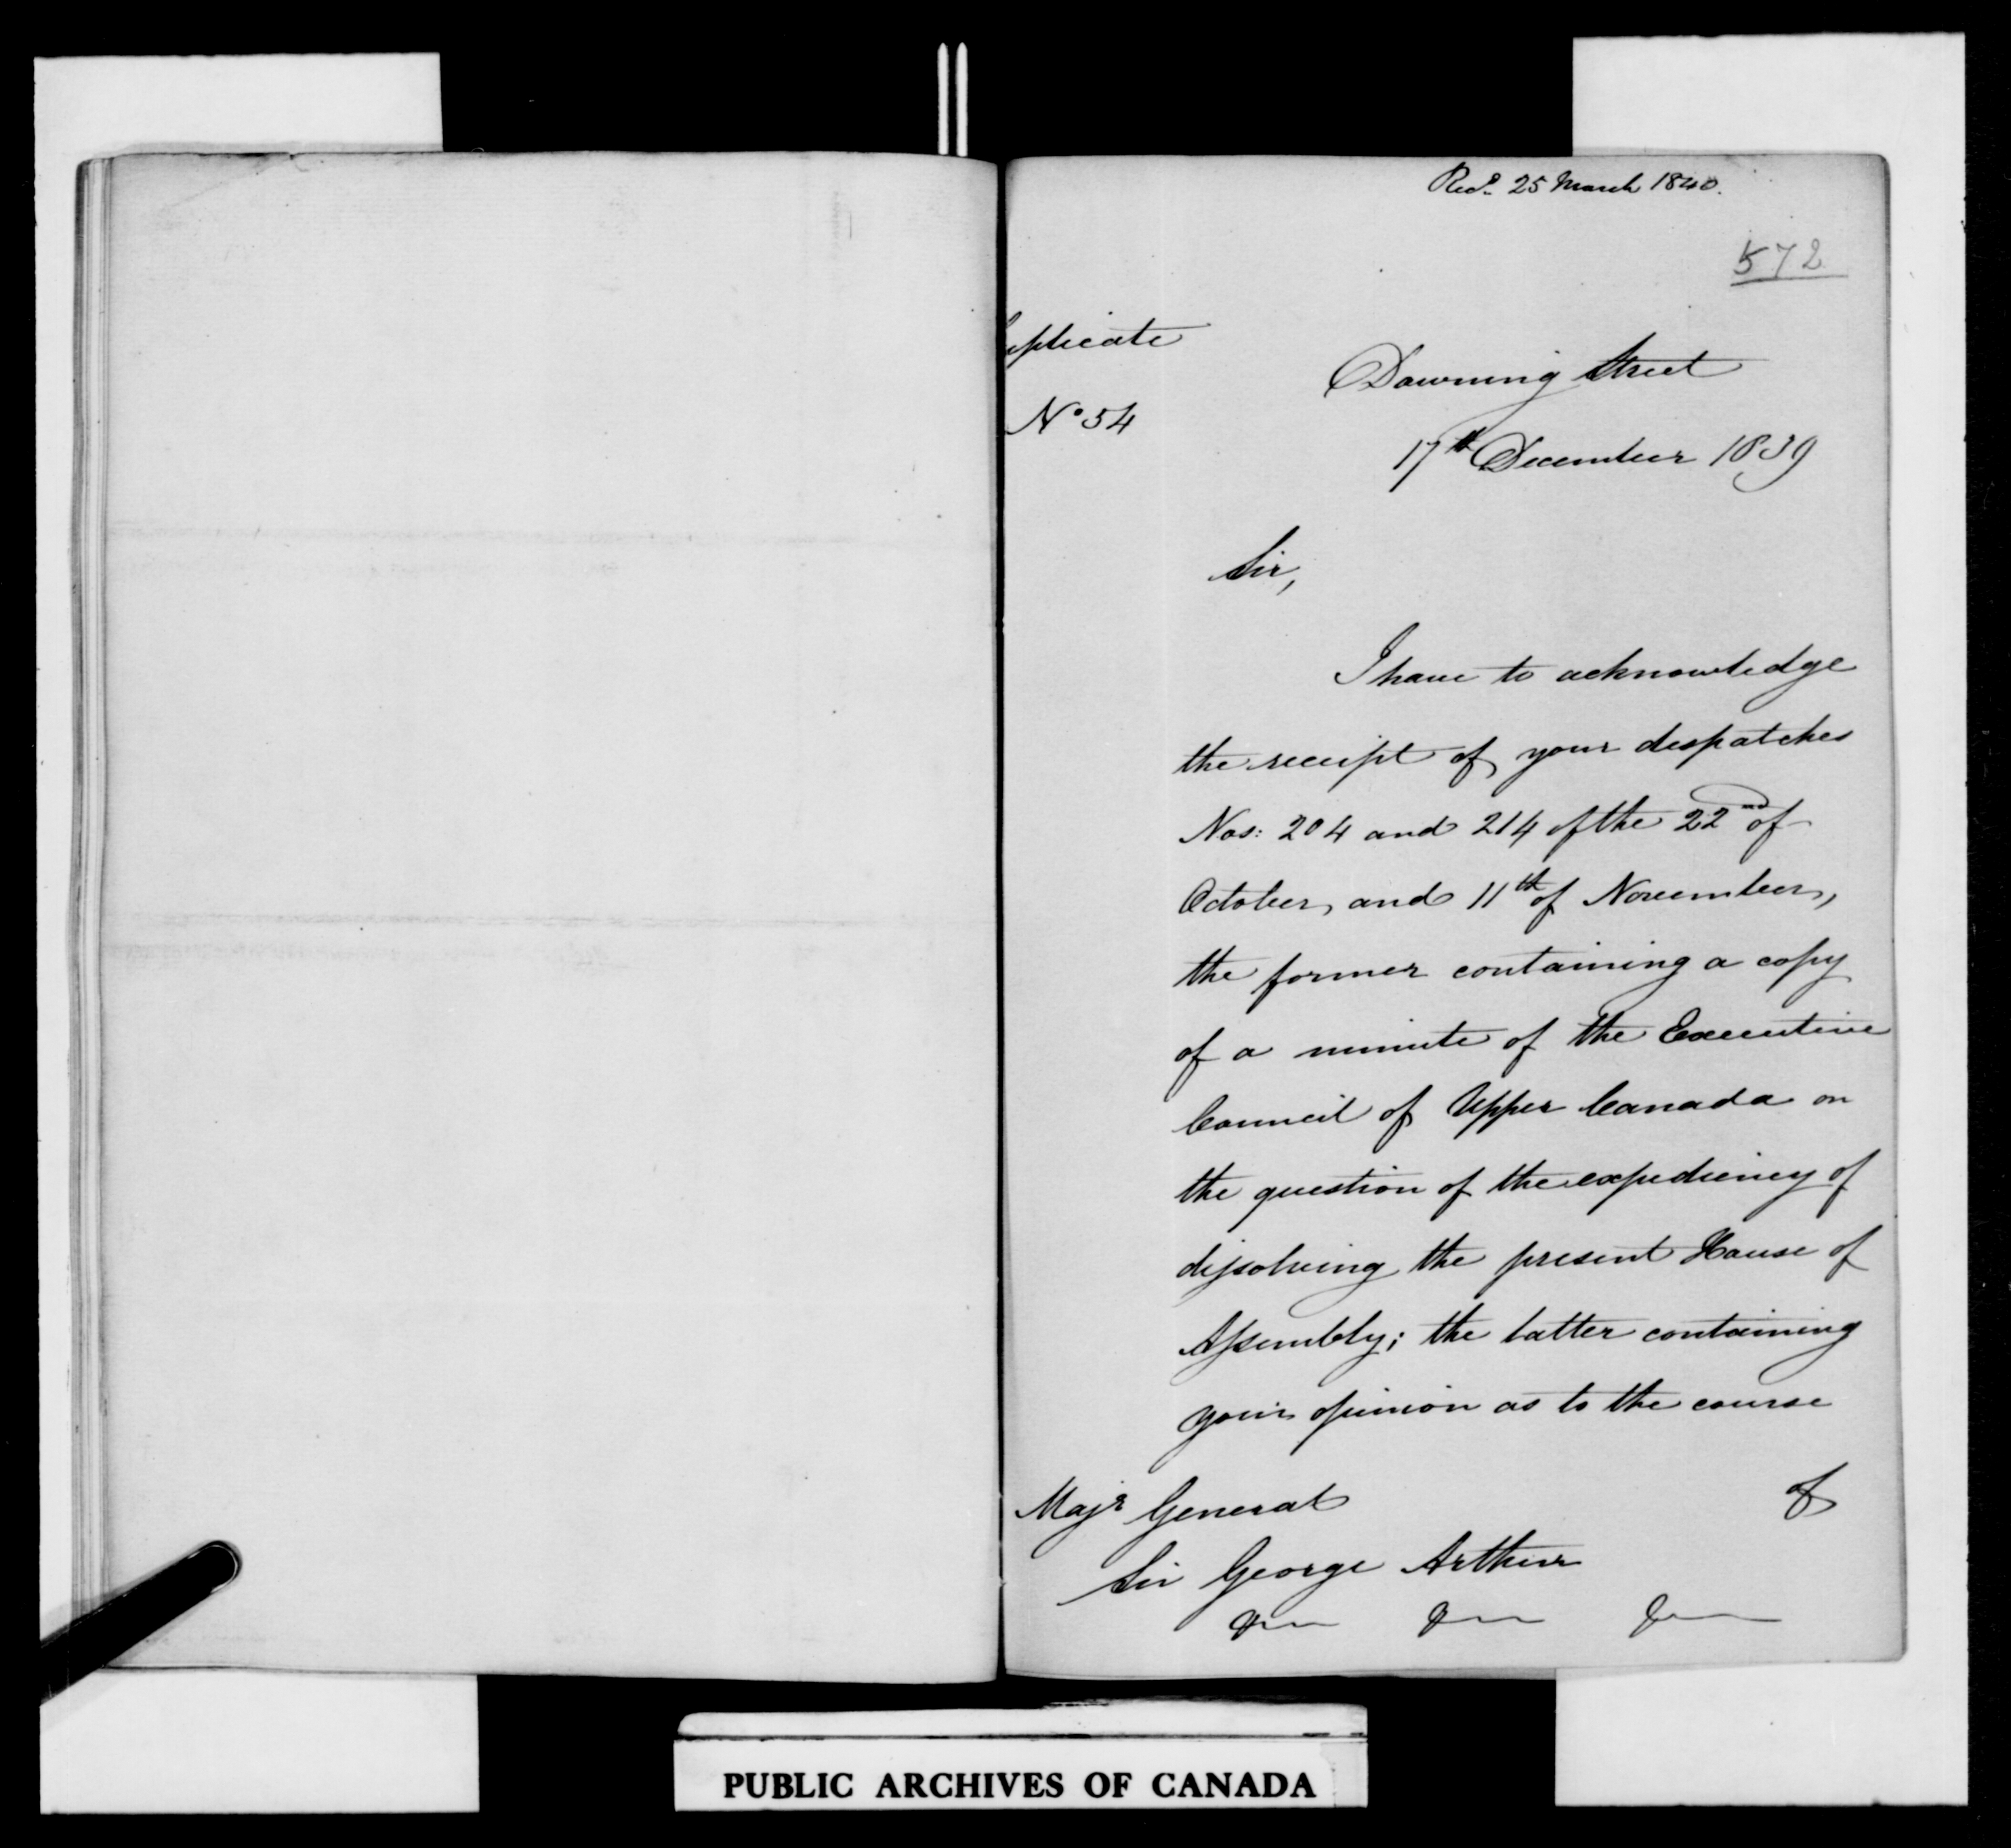 Recd. 25 March 1840.
572
uplicate
No 54
Downing Street
17th December 1839
Sir,
I have to acknowledge
the receipt of your despatches
Nos: 204 and 214 of the 22nd of
October, and 11th of November,
the former containing a copy
of a minute of the Executive
Council of Upper Canada on
the question of the expediency of
dissolving the present House of
Assembly; the latter containing
your opinion as to the course
of
Majr General
Sir George Arthur
PUBLIC ARCHIVES OF CANADA